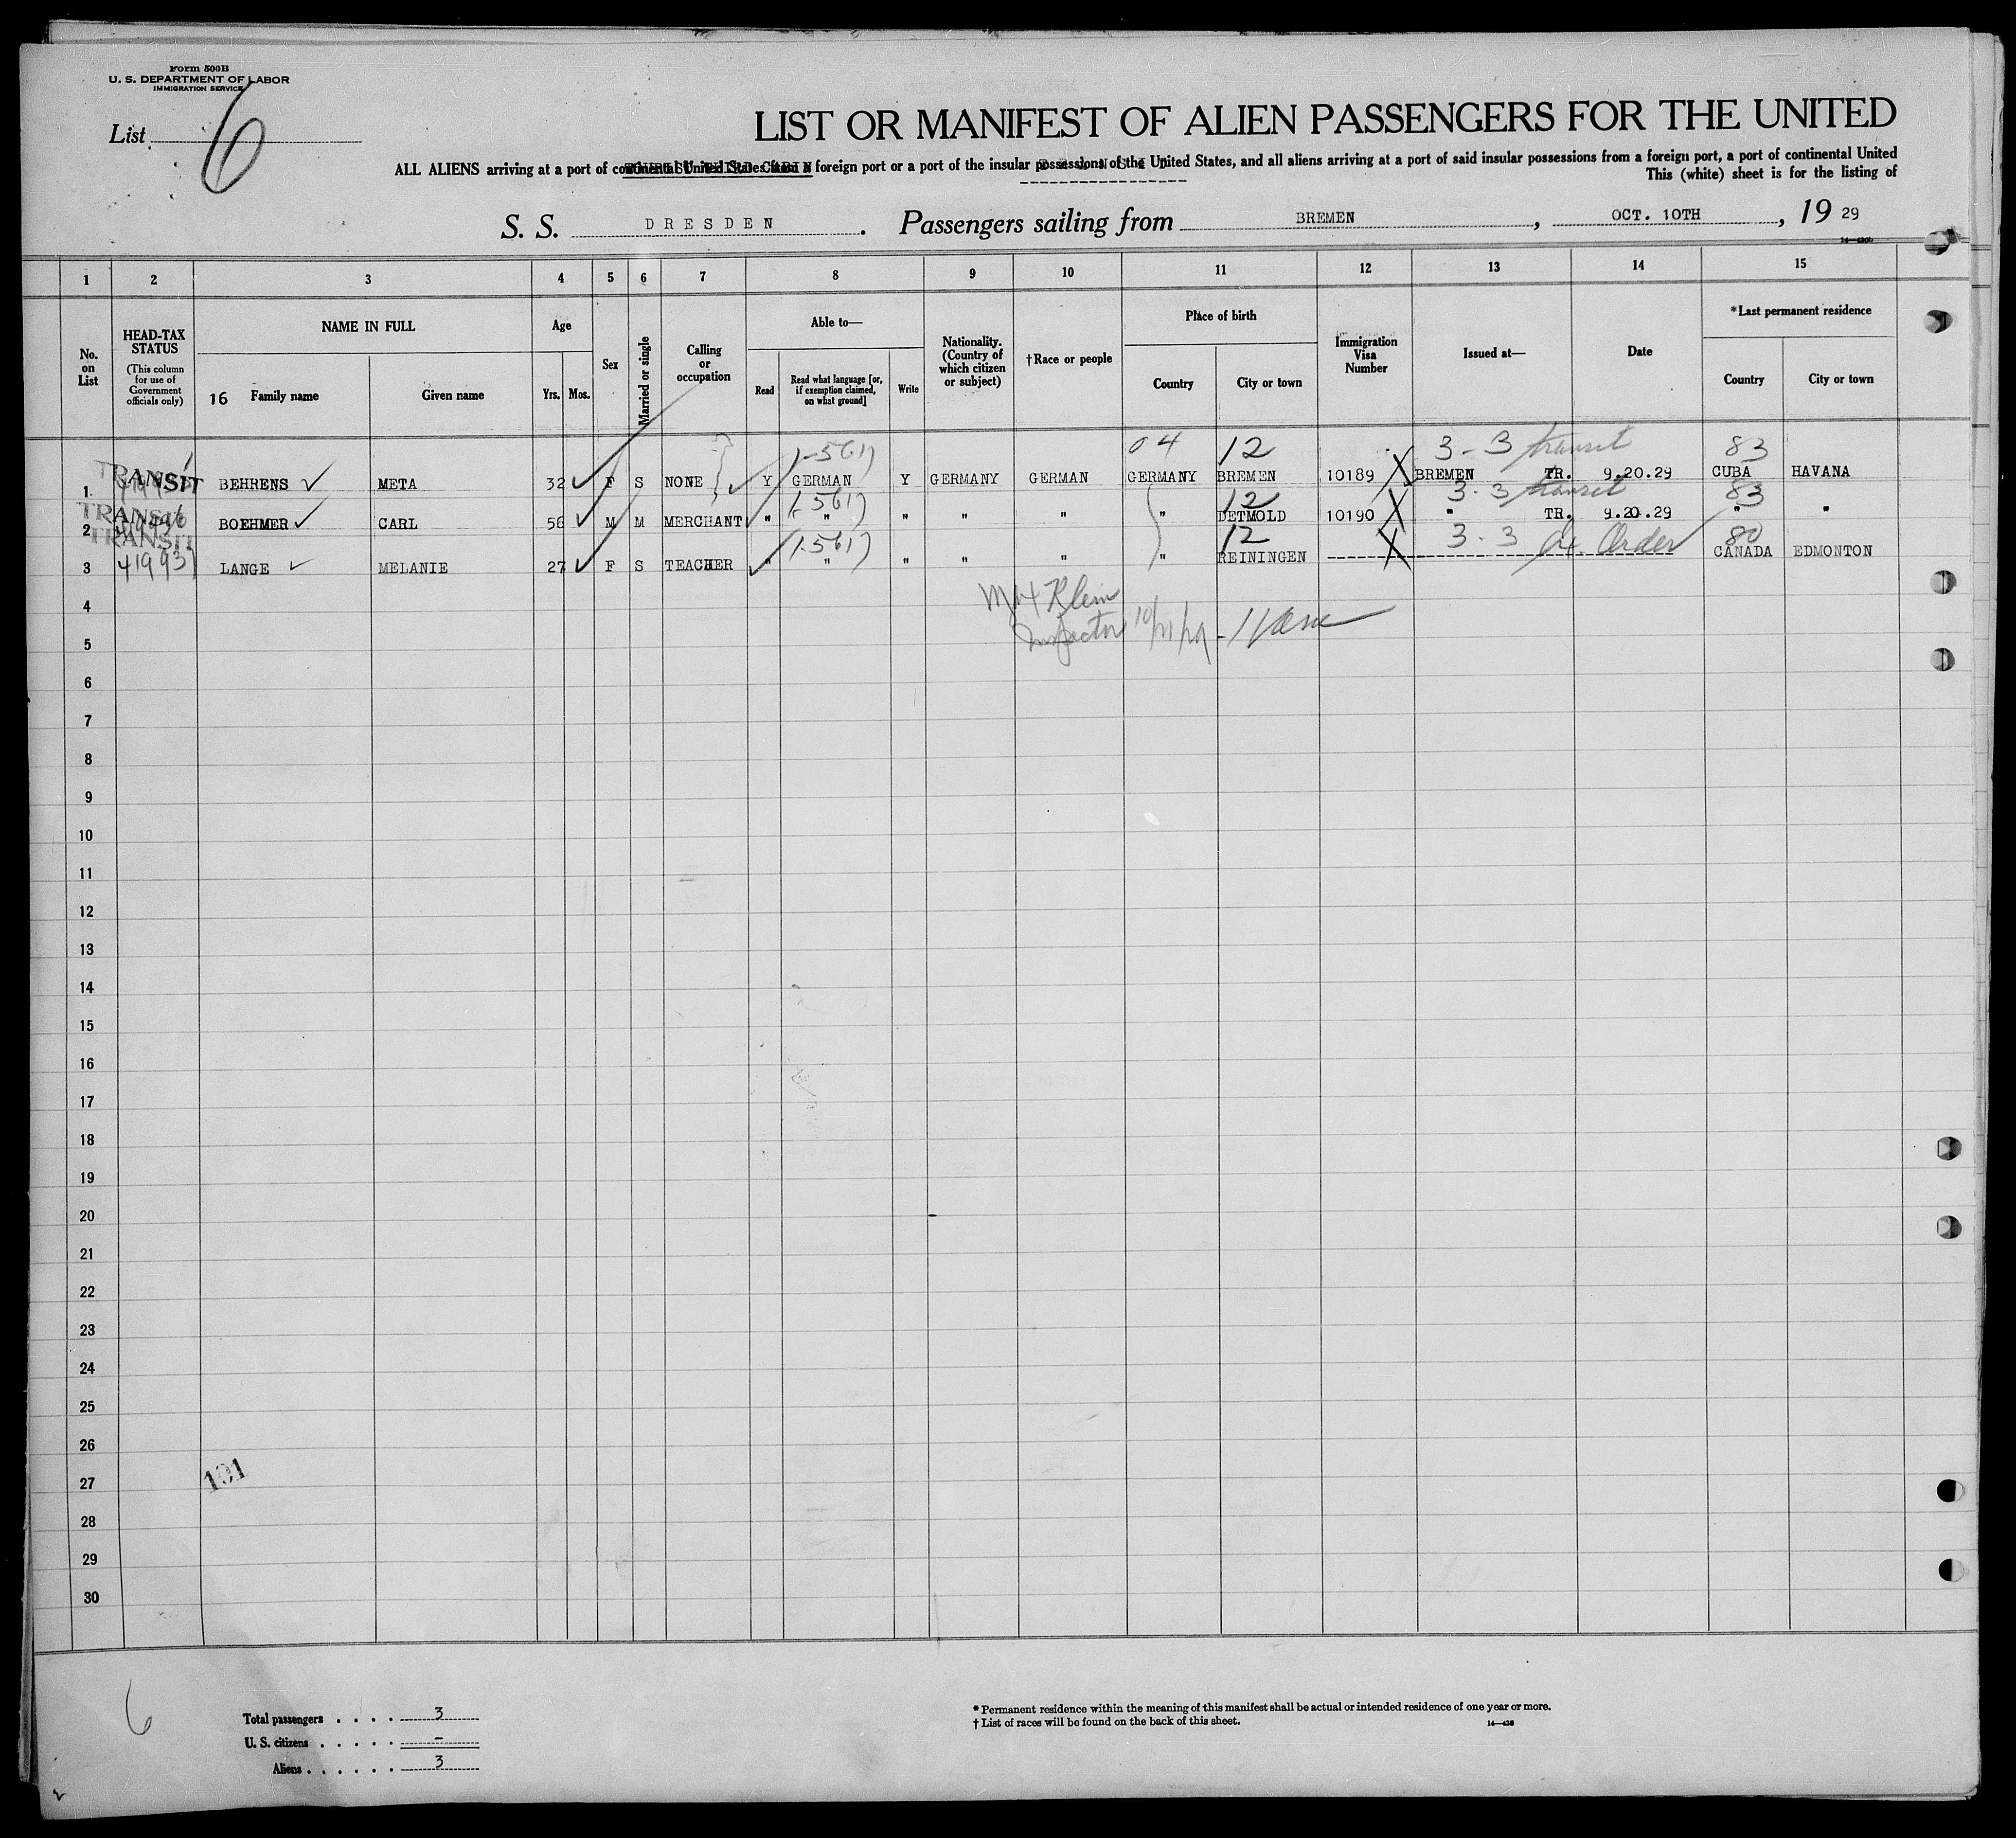 Form 500B
U. S. DEPARTMENT OF LABOR
IMMIGRATION SERVICE
List 6
LIST OR MANIFEST OF ALIEN PASSENGERS FOR THE UNITED
ALL ALIENS arriving at a port of continental United States from a foreign port or a port of the insular possessions of the United States, and all aliens arriving at a port of said insular possessions from a foreign port, a port of continental United
This (white) sheet is for the listing of
S. S. DRESDEN. Passengers sailing from BREMEN, OCT. 10TH, 19 29
1 2 3 4 5 6 7 8 9 10 11 12 13 14 15
No. on List
HEAD-TAX STATUS (This column for use of Government officials only)
NAME IN FULL
16 Family name
Given name
Age
Yrs. Mos.
Sex
Married or single
Calling or occupation
Able to—
Read
Read what language [or, if exemption claimed, on what ground]
Write
Nationality. (Country of which citizen or subject)
†Race or people
Place of birth
Country
City or town
Immigration Visa Number
Issued at—
Date
*Last permanent residence
Country
City or town
04 12 3-3 transit 83
1 TRANSIT BEHRENS META 32 F S NONE Y GERMAN Y GERMANY GERMAN GERMANY BREMEN 10189 BREMEN TR. 9.20.29 CUBA HAVANA
12 3-3 transit 83
2 TRANSIT BOEHMER CARL 56 M M MERCHANT " " " " " " DETMOLD 10190 " TR. 9.20.29 " "
TRANSIT 12 3-3 Order 80
3 41993 LANGE MELANIE 27 F S TEACHER " " " " " " REININGEN CANADA EDMONTON
4 Klein
5 Inspector
6
7
8
9
10
11
12
13
14
15
16
17
18
19
20
21
22
23
24
25
26
27 131
28
29
30
6
Total passengers . . . . 3
U. S. citizens . . . . . –
Aliens . . . . . . 3
* Permanent residence within the meaning of this manifest shall be actual or intended residence of one year or more.
† List of races will be found on the back of this sheet.